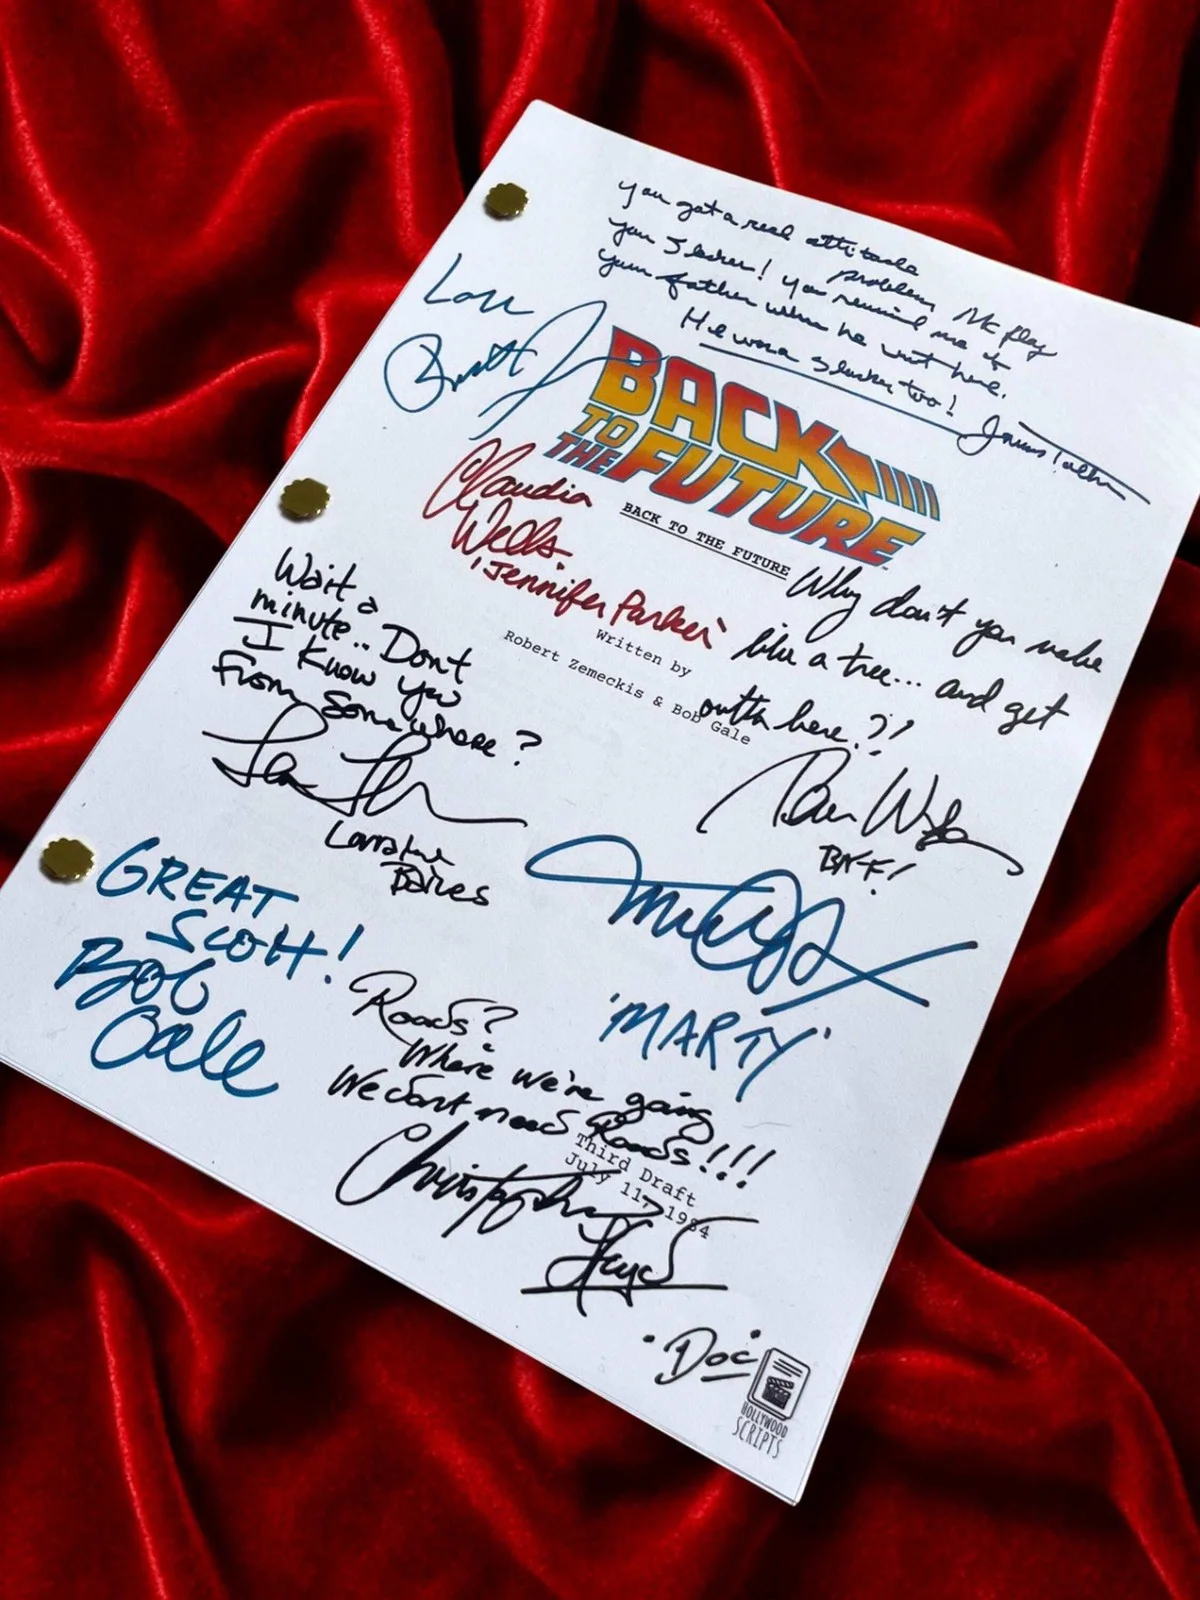 You got a real attitude
problem, McFly
You slacker! You remind me of
your father when he went here.
He was a slacker too!
James Tolkan
Love
BACK
TO
THE FUTURE
BACK TO THE FUTURE
Claudia
Wells
'Jennifer Parker'
Why don't you make
like a tree... and get
outta here?!
Written by
Robert Zemeckis & Bob Gale
Wait a
minute.. Dont
I Know you
from somewhere?
Lea
Lorraine
Baines
BIFF!
GREAT
SCOTT!
Bob
Gale
'MARTY'
Roads?
Where we're going
We dont need Roads!!!
Third Draft
July 11, 1984
Christopher
Lloyd
"Doc"
HOLLYWOOD
SCRIPTS